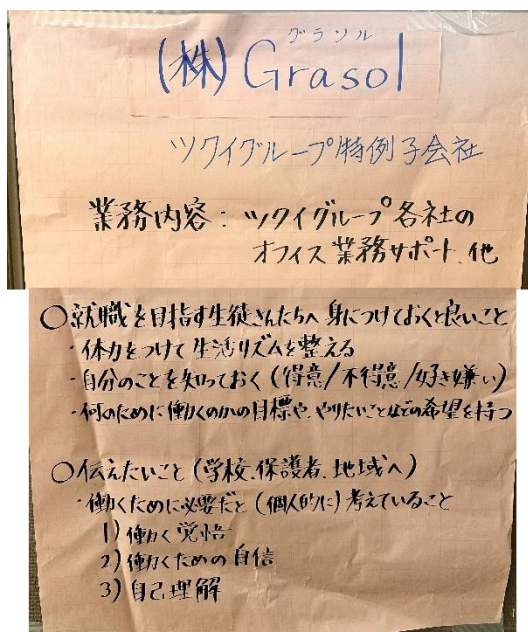 グラソル
(株)Grasol
ツクイグループ特例子会社
業務内容：ツクイグループ各社の
オフィス業務サポート、他
○就職を目指す生徒さんたちへ 身につけておくと良いこと
・体力をつけて生活リズムを整える
・自分のことを知っておく(得意/不得意/好き嫌い)
・何のために働くのかの目標や、やりたいことなどの希望を持つ
○伝えたいこと(学校、保護者、地域へ)
・働くために必要だと(個人的に)考えていること
1)働く覚悟
2)働くための自信
3)自己理解